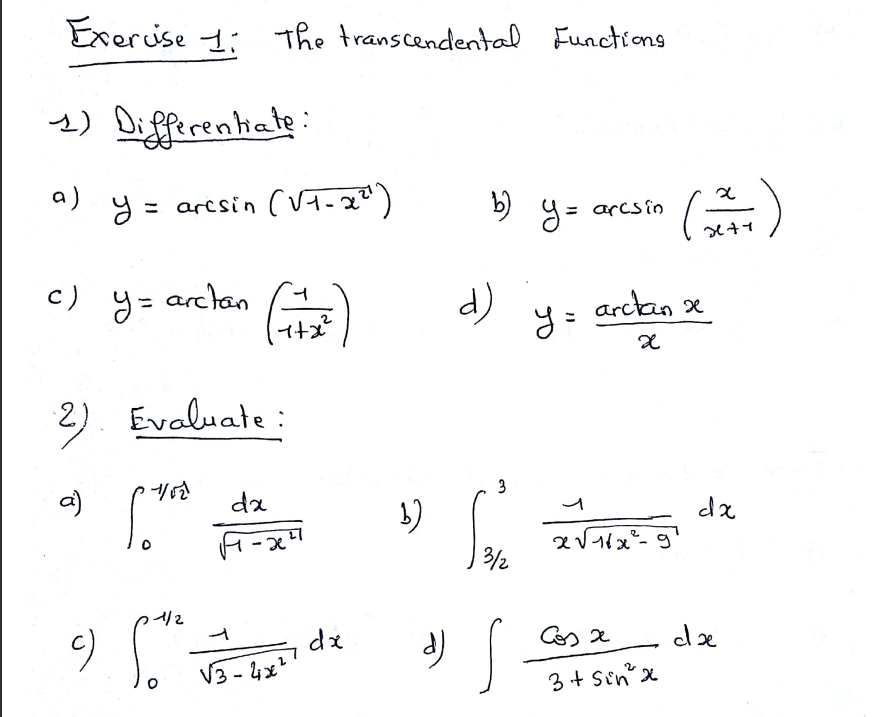 Exercise 1: The transcendental Functions
1) Differentiate:
a) y = arcsin (√(1-x²)) b) y = arcsin (x/(x+1))
c) y = arctan (1/(1+x²)) d) y = arctan x / x
2). Evaluate:
a) ∫₀^(1/√2) dx/√(1-x²) b) ∫_(3/2)^3 1/(x√(16x²-9)) dx
c) ∫₀^(1/2) 1/√(3-4x²) dx d) ∫ cos x/(3+sin²x) dx